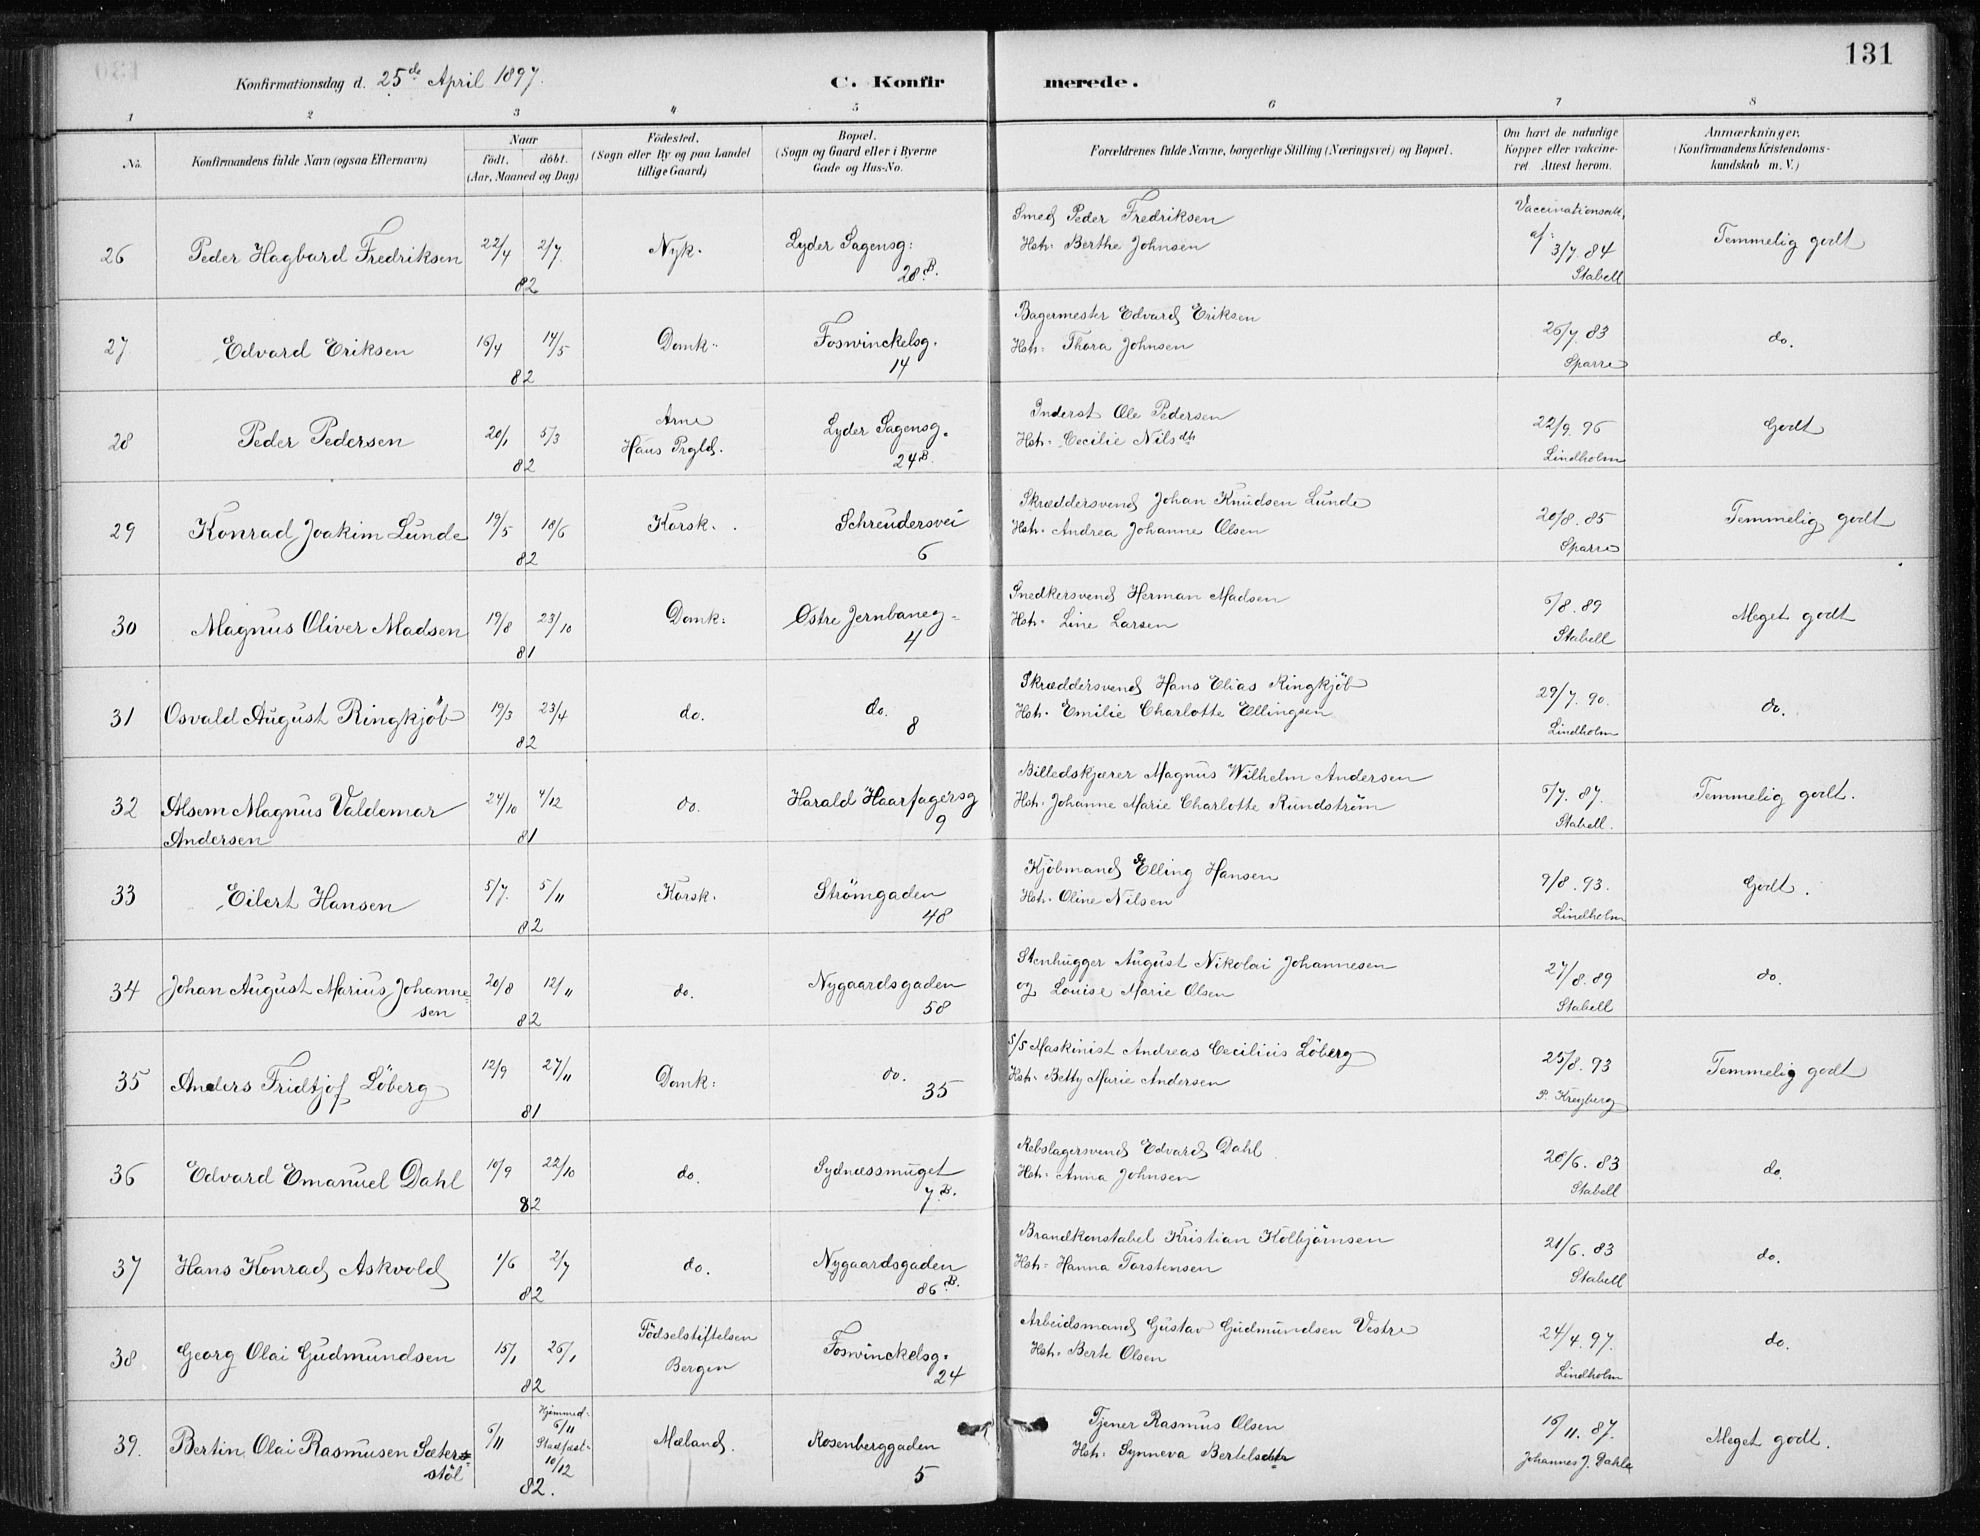 131
Konfirmationsdag d. 25de April 1897.
C. Konfirmerede.
1 2 3 4 5 6 7 8
No.
Konfirmandens fulde Navn (ogsaa Efternavn)
Naar
født. døbt.
(Aar, Maaned og Dag)
Födested.
(Sogn eller By og paa Landet
tillige Gaard)
Bopæl.
(Sogn og Gaard eller i Byerne
Gade og Hus-No.
Forældrenes fulde Navne, borgerlige Stilling (Næringsvei) og Bopæl.
Om havt de naturlige
Kopper eller vakcine-
ret. Attest herom.
Anmærkninger.
(Konfirmandens Kristendoms-
kundskab m. V.)
26 Peder Hagbard Fredriksen 22/4 2/7 82 Nyk. Lyder Sagensg: 28 B.
Smed Peder Fredriksen
Hst: Berthe Johnsen
Vaccinationsatt.
af: 3/7. 84
Stabell
Temmelig godt
27 Edvard Eriksen 16/4 14/5 82 Domk. Foswinckelsg. 14
Bagermester Edvard Eriksen
Hst: Thora Johnsen
26/7. 83
Sparre
do.
28 Peder Pedersen 20/1 5/3 82 Arne
Haus Prgld. Lyder Sagensg. 24 B.
Inderst Ole Pedersen
Hst: Cecilie Nilsdtr
22/9. 96
Lindholm
Godt
29 Konrad Joakim Lunde 19/5 18/6 82 Korsk. Schreudersvei 6
Skræddersvend Johan Knudsen Lunde
Hst. Andrea Johanne Olsen
20/8. 85
Sparre
Temmelig godt
30 Magnus Oliver Madsen 19/8 23/10 81 Domk: Østre Jernbaneg- 4
Snedkersvend Herman Madsen
Hst. Line Larsen
6/8. 89
Stabell
Meget godt
31 Osvald August Ringkjöb 19/3 23/4 82 do. do. 8
Skræddersvend Hans Elias Ringkjöb
Hst. Emilie Charlotte Ellingsen
29/7. 90.
Lindholm
do.
32 Alsem Magnus Valdemar
Andersen 24/10 4/12 81 do. Harald Haarfagersg 9
Billedskjærer Magnus Wilhelm Andersen
Hst. Johanne Marie Charlotte Rundström
6/7. 87.
Stabell.
Temmelig godt.
33 Eilert Hansen 5/7. 5/11 82 Korsk. Strömgaden 48
Kjöbmand Elling Hansen
Hst. Oline Nilsen
9/8. 93.
Lindholm
Godt.
34 Johan August Marius Johanne-
sen 20/8 12/11 82 do. Nygaardsgaden 58
Stenhugger August Nikolai Johannesen
og Louise Marie Olsen
27/8. 89
Stabell
do.
35 Anders Fridtjof Löberg 12/9 27/11 81 Domk: do. 35
S/S Maskinist Andreas Cecilius Löberg
Hst. Betty Marie Andersen
25/8. 93
P. Kreyberg
Temmelig godt
36 Edvard Emanuel Dahl 10/9 22/10 82 do. Sydnæssmuget 7 B.
Rebslagersvend Edvard Dahl
Hst: Anna Johnsen
20/6. 83
Stabell
do.
37 Hans Konrad Askvold 1/6 2/7 82 do. Nygaardsgaden 86 B.
Brandkonstabel Kristian Kolbjörnsen
Hst: Hanna Torstensen
21/6. 83
Stabell
do.
38 Georg Olai Gudmundsen 15/1 26/1 82 Födselstiftelsen
Bergen Foswinckelsg. 24
Arbeidsmand Gustav Gudmundsen Vestre
Hst. Berte Olsen
24/4. 97.
Lindholm
do.
39. Bertin Olai Rasmusen Sæter-
stöl 6/11 Hjemmed. 6/11
Stadfæst- 10/12 82. Mæland. Rosenberggaden 5
Tjener Rasmus Olsen
Hst: Synneva Bertelsdtr
16/11. 87.
Johannes J. Dahle
Meget godt.